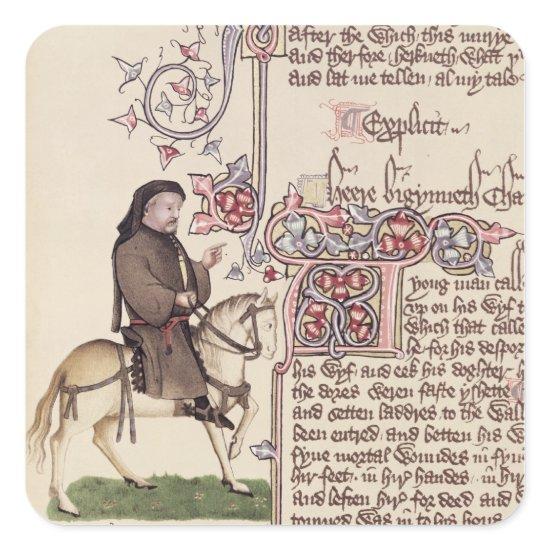 after the which, this murye
and therfore, herkneth, what y
and lat me tellen, al my tale
Explicit
Heere bigynneth Cha
young man call
up on his wyf
Which that calle
he for his despor
his wyf, and eek his doghter
the dores weren faste yshette
and setten laddres to the wall
been entred, and betten his w
fyue mortal woundes in fyu
hir feet, in hir handes, in hir
and leften hire for deed and
torned was in to his hous